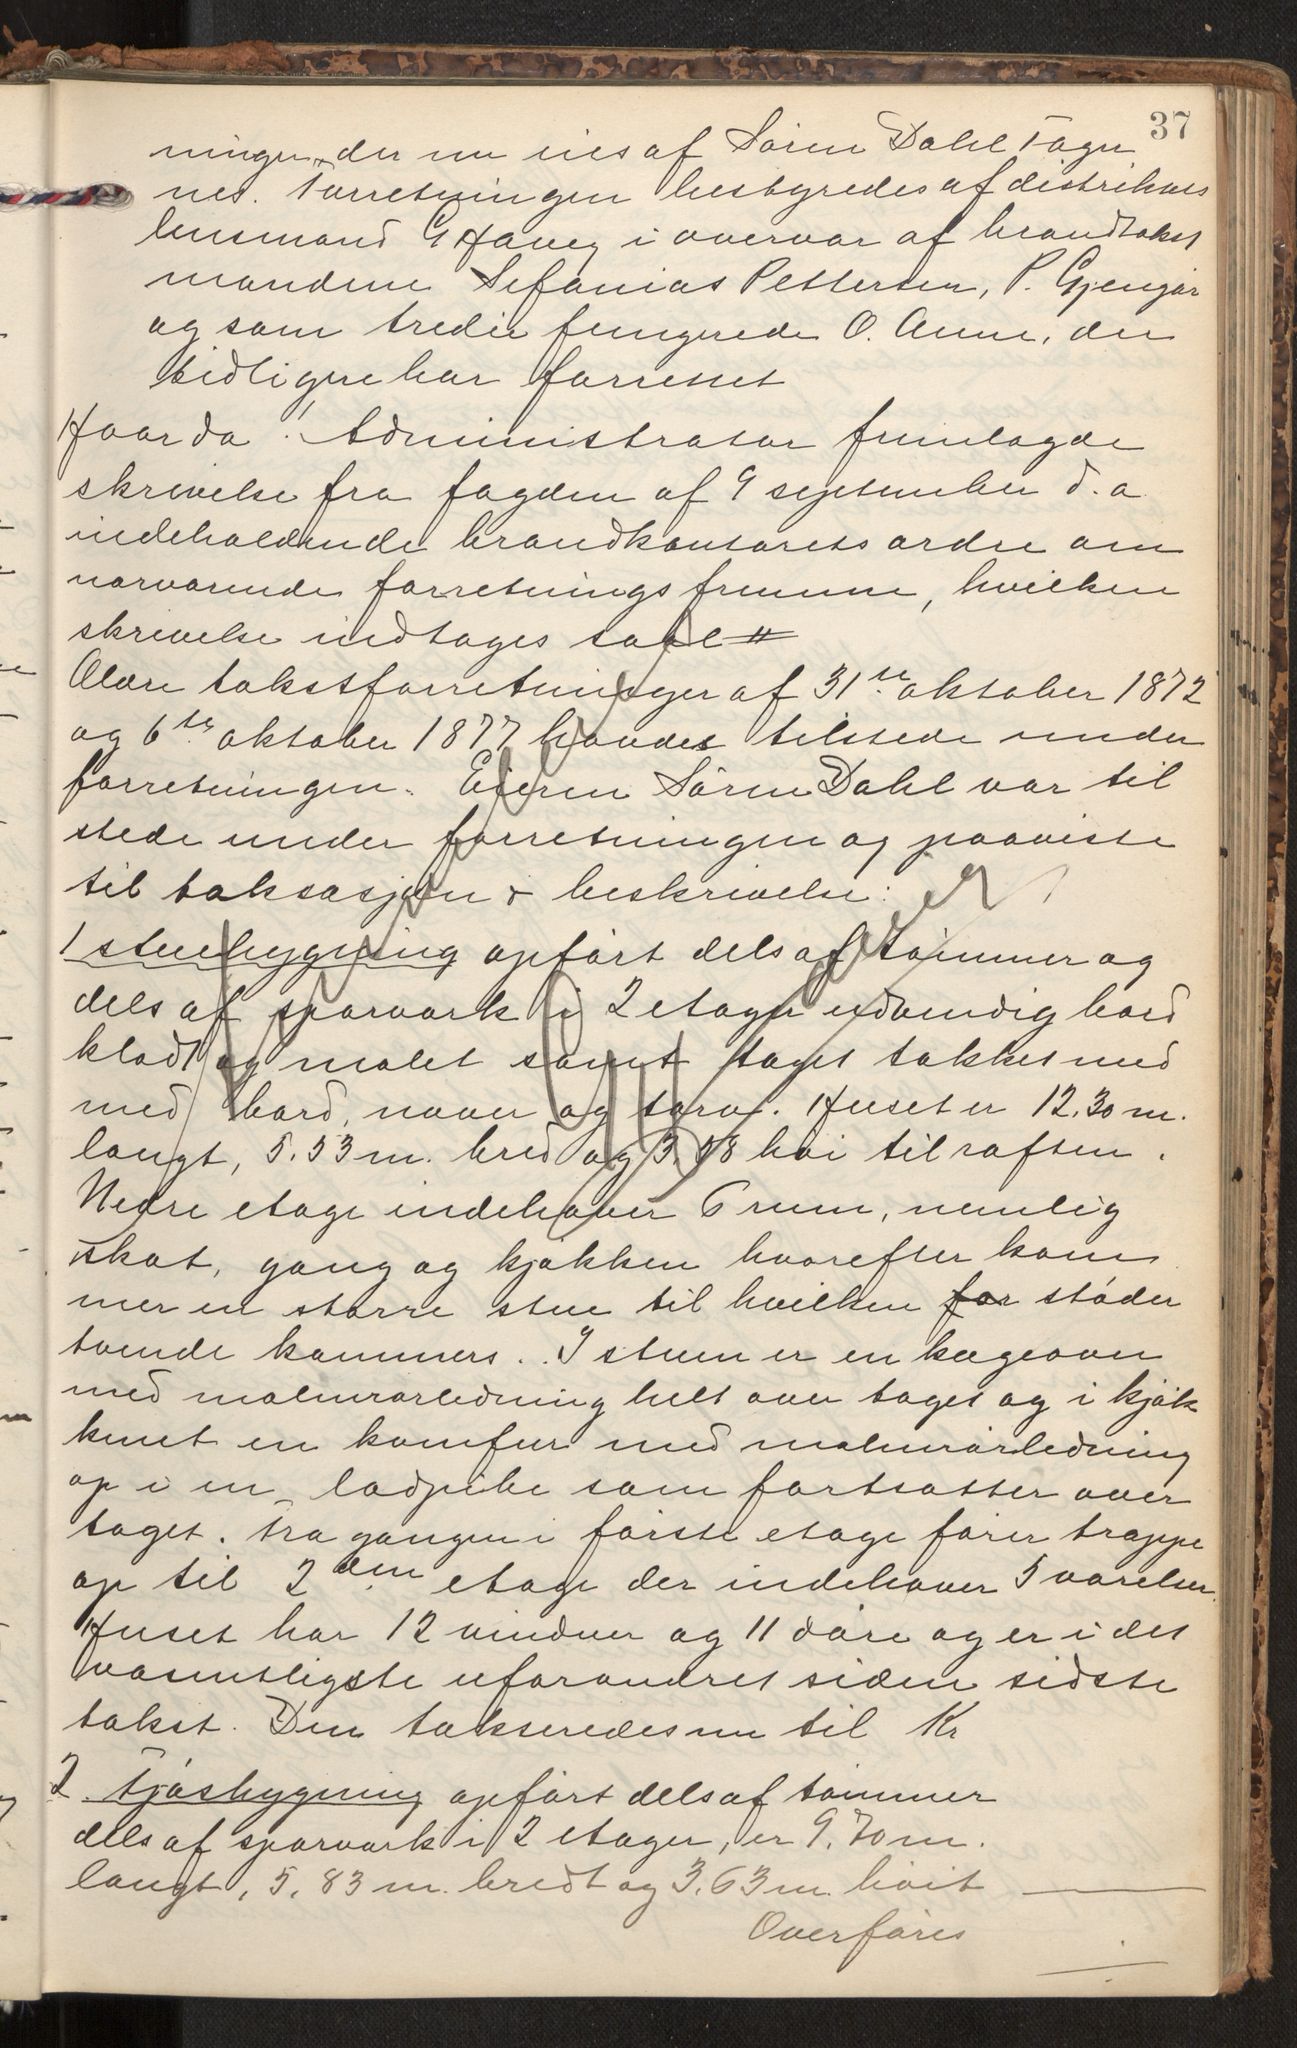 37
ninger, der nu eies af Sören Dahl Fager
nes. Forretningen bestyredes af distriktets
lensmand G Haveg i overvær af brandtakst
mændene Sefanias Pettersen, P. Gjengår
og som tredie fungerede O. Aune, der
tidligere har forrettet
Hvorda: Administrator fremlagde
skrivelse fra fogden af 9 september d. a
indeholdende brandkontorets ordre om
nærværende forretnings fremme, hvilken
skrivelse indtages saal #
Ældre takstforretninger af 31te oktober 1872
og 6te oktober 1877 havdes tilstede under
forretningen. Eieren Sören Dahl var til
stede under forretningen og paaviste
til taksasjon & beskrivelse:
1 stuebygning opfört dels af tömmer og
dels af sparværk i 2 etager udvendig bord
klædt og malet samt taget tækket med
med bord, never og torv. Huset er 12.30 m.
langt, 5.53 m. bred og 3.58 höi til raften.
Nedre etage indehaver 6 rum, nemlig
skot, gang og kjökken hvorefter kom
mer en större stue til hvilken for stöder
tvende kammers. I stuen er en kogeovn
med malmrörledning helt over taget og i kjök
kenet en komfur med malmrörledning
op i en lodpibe som fortsætter over
taget. Fra gangen i förste etage förer trappe
op til 2den etage der indehaver 5 værelser.
Huset har 12 vinduer og 11 döre og er i det
væsentligste uforandret siden sidste
takst. Den takseredes nu til Kr
2 Fjösbygning opfört dels af tömmer
dels af sparværk i 2 etager, er 9.70 m.
langt, 5.83 m. bredt og 3.63 m. höit
Overföres